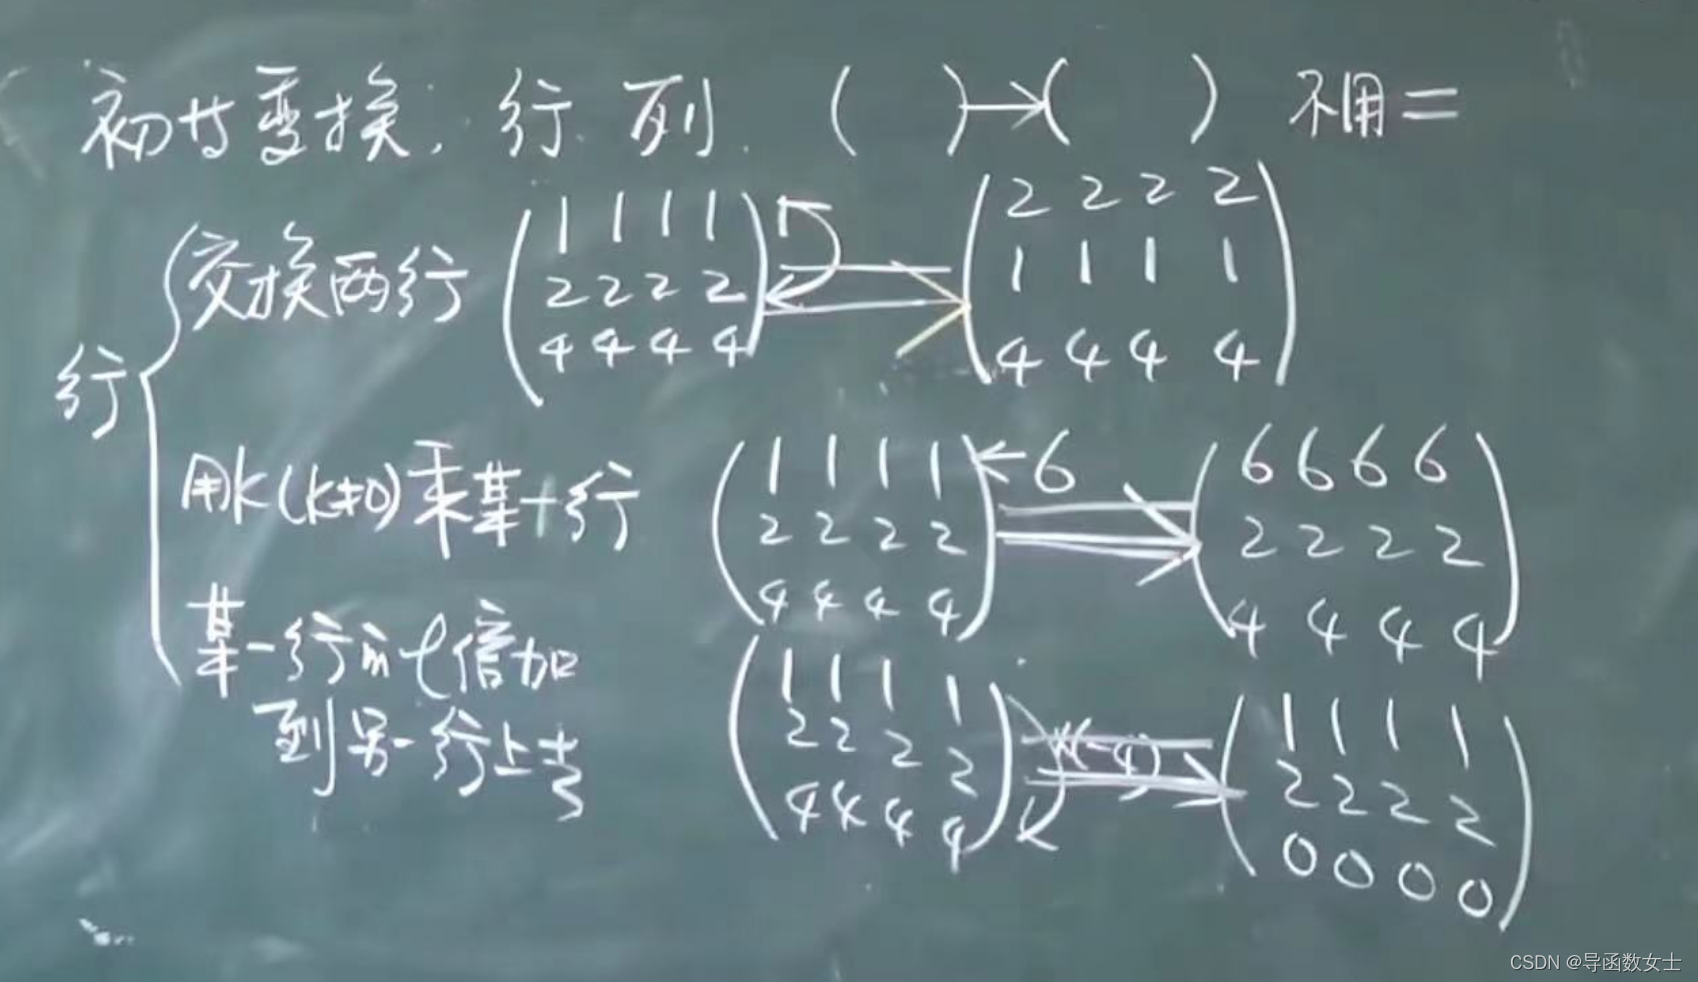 初等变换: 行 列 ( ) → ( ) 不用=
行
交换两行
1 1 1 1
2 2 2 2
4 4 4 4
2 2 2 2
1 1 1 1
4 4 4 4
用k(k≠0)乘某一行
1 1 1 1 ← 6
2 2 2 2
4 4 4 4
6 6 6 6
2 2 2 2
4 4 4 4
某一行的l倍加
到另一行上去
1 1 1 1
2 2 2 2
4 4 4 4
×(-4)
1 1 1 1
2 2 2 2
0 0 0 0
CSDN @导函数女士